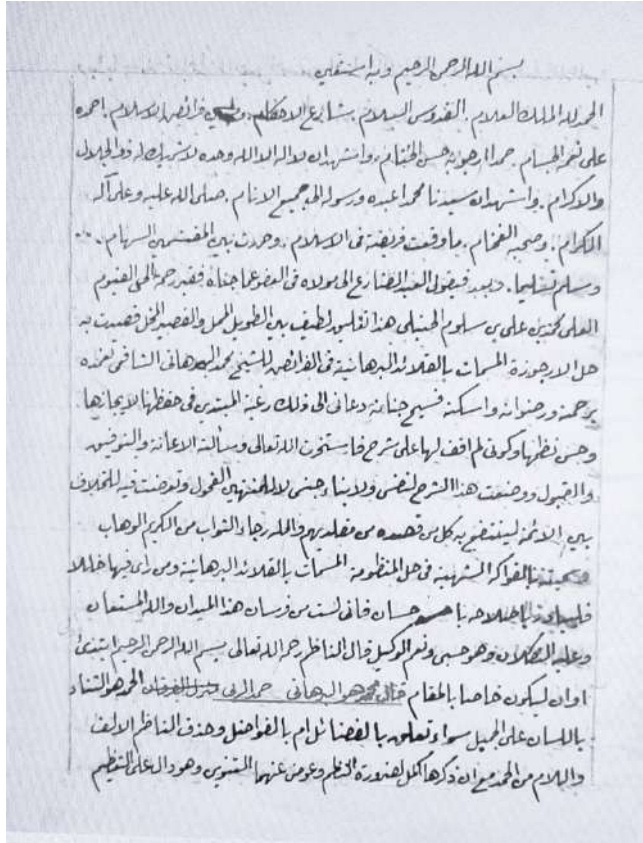 بسم الله الرحمن الرحيم وبه استعين
الحمد لله الملك العلام، القدوس السلام، شارع الاحكام، فرائض الاسلام، احمده
على نعمه الجسام، حمدا ارجو به حسن الختام، واشهد ان لا اله الا الله وحده لا شريك له ذو الجلال
والاكرام، واشهد ان سيدنا محمدا عبده ورسوله الى جميع الانام، صلى الله عليه وعلى آله
الكرام، وصحبه الفخام، ما وقعت فريضة في الاسلام، وحررت بين المقتسمين السهام،
وسلم تسليما، وبعد فيقول العبد الضارع الى مولاه في العفو عما جناه فقير رحمة الحي القيوم
العلي محمد بن علي بن سلوم الحنبلي هذا تعليق لطيف بين الطويل الممل والقصير المخل قصدت به
حل الارجوزة المسمات بالقلائد البرهانية في الفرائض للشيخ محمد البرهاني الشافعي تغمده
برحمته ورضوانه واسكنه فسيح جنانه دعاني الى ذلك رغبة المبتدي في حفظها لايجازها
وحسن نظمها وكوني لم اقف لها على شرح فاستخرت الله تعالى وسألته الاعانة والتوفيق
والقبول ووضعت هذا الشرح لنفسي ولابناء جنسي لا للمنتهين الفحول وتعرضت فيه للخلاف
بين الائمة لينتفع به كل من قصده من مقلديهم والله رجاء الثواب من الكريم الوهاب
وسميته بالفواكه الشهية في حل المنظومة المسمات بالقلائد البرهانية ومن رأى فيها خللا
باصلاحه باحسان فاني لست من فرسان هذا الميدان والله المستعان
وعليه التكلان وهو حسبي ونعم الوكيل قال الناظم رحمه الله تعالى بسم الله الرحمن الرحيم ابتدئ
اوان ليكون خاصا بالمقام قال محمد هو البرهاني حمدا لربي منزل الفرقان الحمد هو الثناء
باللسان على الجميل سواء تعلق بالفضائل ام بالفواضل وحذف الناظم الالف
واللام من الحمد مع ان ذكرها اكمل لضرورة النظم وعوض عنهما التنوين وهو دال على التعظيم